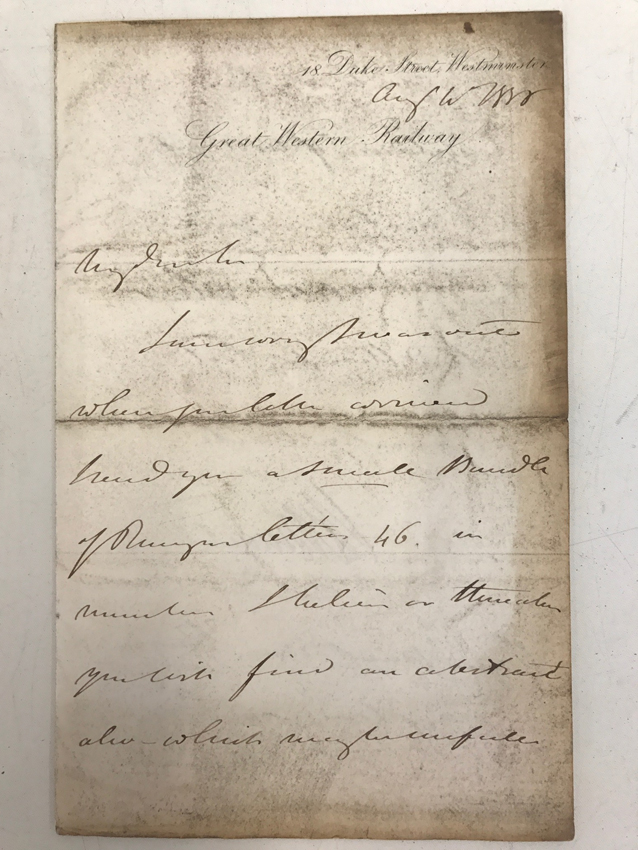 18 Duke Street, Westminster
Aug
Great Western Railway
My dear Sir
I am sorry I was out
when your letter arrived
I send you a small Bundle
of letters 46. in
number I believe or thereabouts
you will find an abstract
also - which may be useful